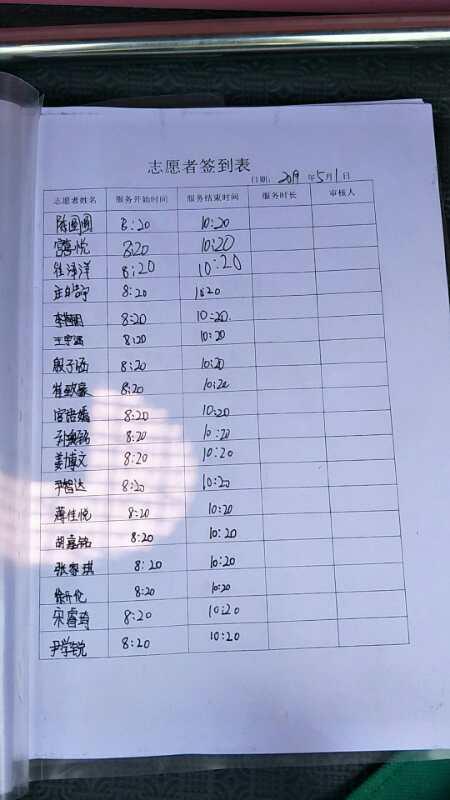 志愿者签到表
日期: 2019 年 5 月 1 日
志愿者姓名 服务开始时间 服务结束时间 服务时长 审核人
陈圆圆 8:20 10:20
宫懿悦 8:20 10:20
杜泽洋 8:20 10:20
8:20 10:20
8:20 10:20
王宇涵 8:20 10:20
殷子涵 8:20 10:20
崔致豪 8:20 10:20
8:20 10:20
8:20 10:20
姜博文 8:20 10:20
尹智达 8:20 10:20
薄佳悦 8:20 10:20
胡嘉铭 8:20 10:20
张家琪 8:20 10:20
8:20 10:20
宋睿琦 8:20 10:20
尹学锐 8:20 10:20